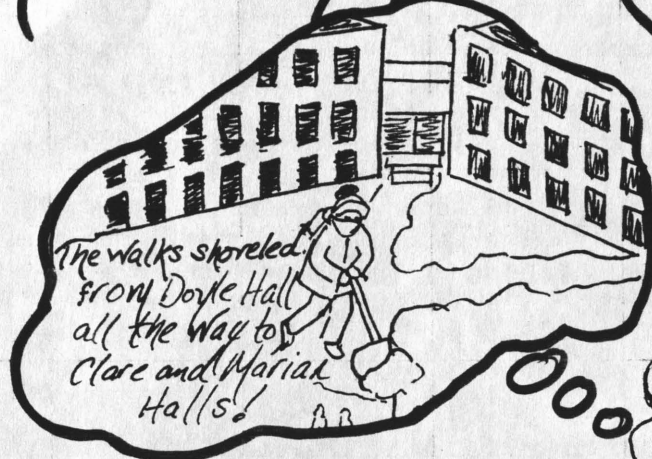 The Walks shoveled
from Doyle Hall
all the Way to
Clare and Marian
Halls!